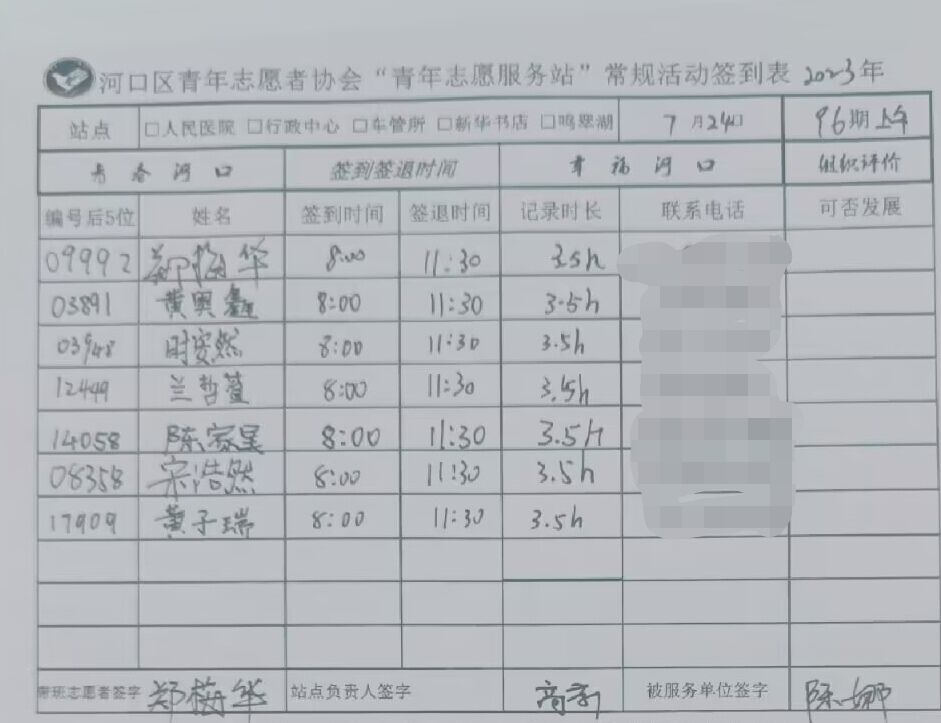 河口区青年志愿者协会“青年志愿服务站”常规活动签到表 2023年
站点 □人民医院 □行政中心 □车管所 □新华书店 □鸣翠湖 7月24日 96期上午
青春河口 签到签退时间 幸福河口 组织评价
编号后5位 姓名 签到时间 签退时间 记录时长 联系电话 可否发展
09992 郑梅华 8:00 11:30 3.5h
03891 黄奥鑫 8:00 11:30 3.5h
03948 时安然 8:00 11:30 3.5h
12499 兰哲萱 8:00 11:30 3.5h
14058 陈家星 8:00 11:30 3.5H
08358 宋浩然 8:00 11:30 3.5h
17909 黄子瑞 8:00 11:30 3.5h
带班志愿者签字 郑梅华 站点负责人签字 高新 被服务单位签字 陈娜